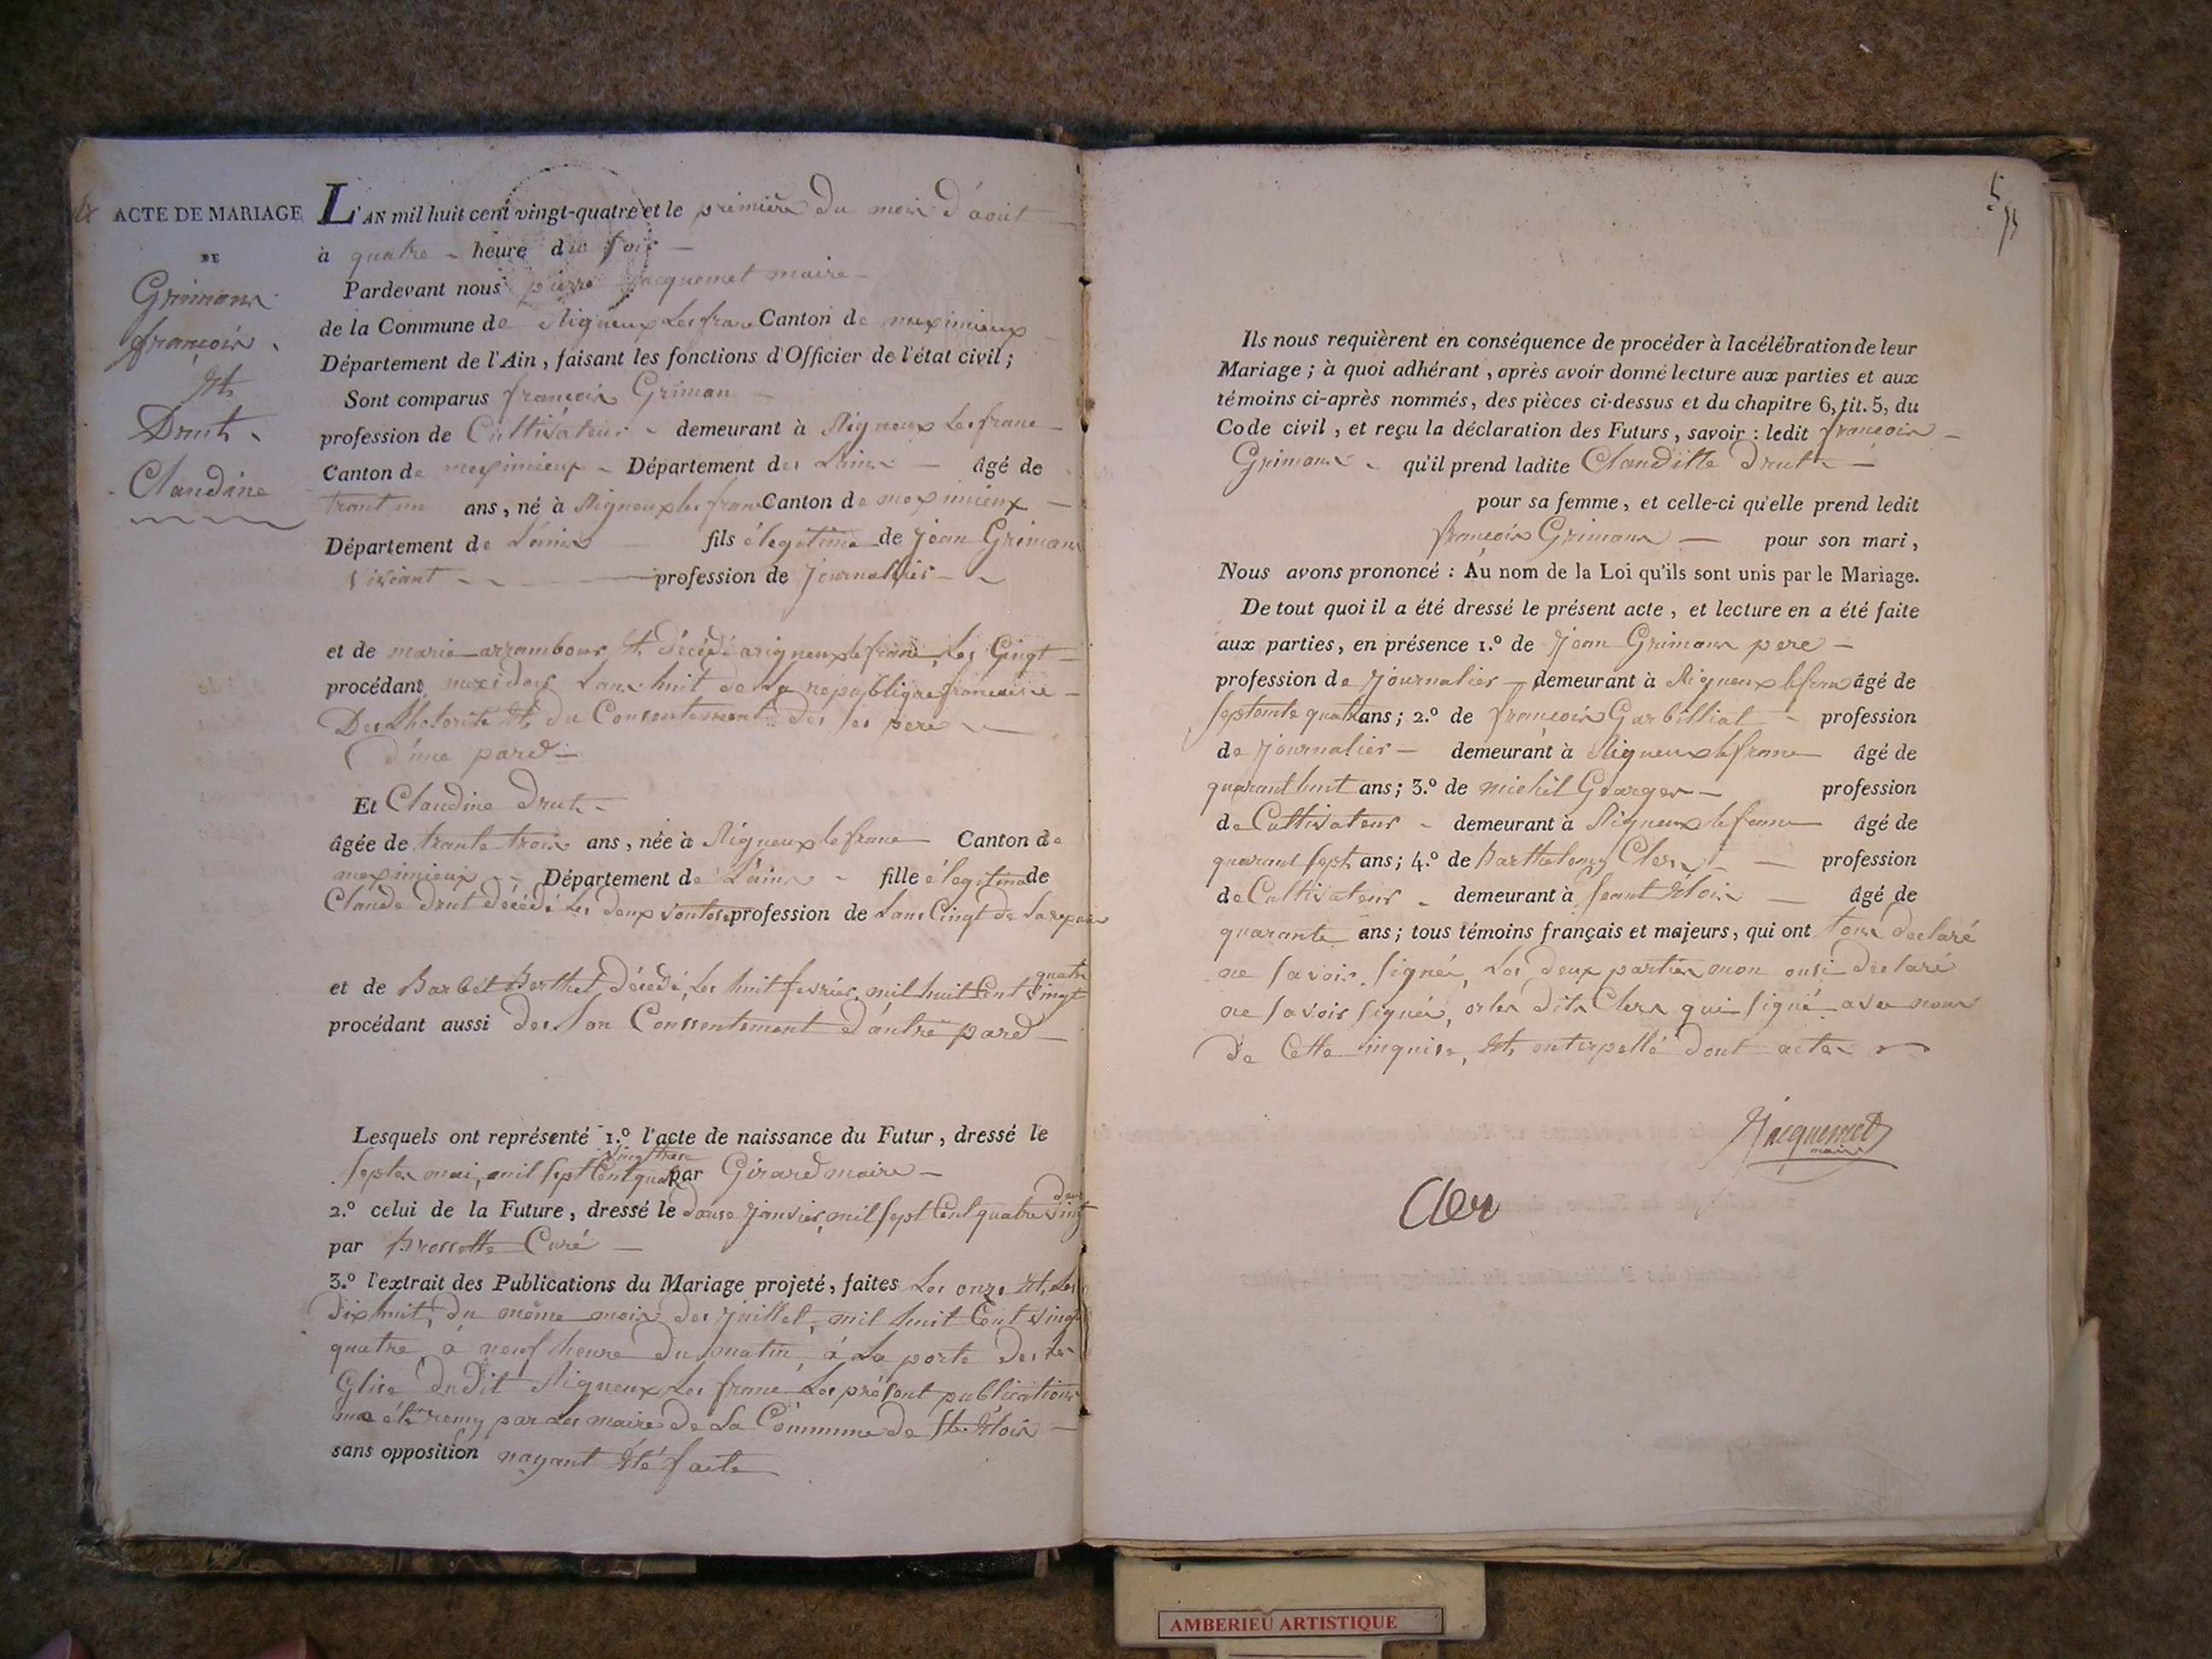 ACTE DE MARIAGE
DE
Grimons
françois
et
Drut
Claudine
L'AN mil huit cent vingt-quatre et le premiere du mois d'aout
à quatre heure du soir
Pardevant nous pierre Jacquemet maire
de la Commune de Rigneux Les franc Canton de meximieux
Département de l'Ain, faisant les fonctions d'Officier de l'état civil;
Sont comparus françois Grimon
profession de Cultivateur demeurant à Rigneux Les franc
Canton de meximieux Département des Lains âgé de
trant un ans, né à Rigneux les franc Canton de meximieux
Département de Lains fils élegetime de Jean Grimons
vivant profession de Journallier
et de marie arrambour et décédé arigneux le franc, Les Cingt
procédant mecidors Lans huit de La republique francaise
Des Lhotorité et du Consentement des ses pere
d'une pard
Et Claudine Drut
âgée de trante trois ans, née à Rigneux le franc Canton de
meximieux Département de Lains fille élegitime de
Claude Drut décédé Les deux profession de Lans Cingt de La
quatre
et de Barbet Berthet décédé, Les huit fevrier mil huit Cent vingt
procédant aussi des Son Conssentement d'autre pard
Lesquels ont représenté 1.º l'acte de naissance du Futur, dressé le
septes mai, mil sept Cent quatre par Girard maire
2.º celui de la Future, dressé le douse Janvier, mil sept Cent quatre vingt
par Brossette Curé
3.º l'extrait des Publications du Mariage projeté, faites Les onze et Les
dixhuit, du même mois des Juillet, mil huit Cent vingt
quatre à neuf heure du matin, à La porte des
Glise dudit Rigneux Les franc Les présent publications
remy par Les maire de La Commune de Ste. Eloix
sans opposition nayant été faite
5
Ils nous requièrent en conséquence de procéder à la célébration de leur
Mariage; à quoi adhérant, après avoir donné lecture aux parties et aux
témoins ci-après nommés, des pièces ci-dessus et du chapitre 6, tit. 5, du
Code civil, et reçu la déclaration des Futurs, savoir: ledit françois
Grimons qu'il prend ladite Clauditte Drut
pour sa femme, et celle-ci qu'elle prend ledit
françois Grimons pour son mari,
Nous avons prononcé: Au nom de la Loi qu'ils sont unis par le Mariage.
De tout quoi il a été dressé le présent acte, et lecture en a été faite
aux parties, en présence 1.º de Jean Grimons pere
profession de Journalier demeurant à Rigneux le franc âgé de
septante quatre ans; 2.º de françois Garbilliat profession
de Journalier demeurant à Rigneux le franc âgé de
quarant huit ans; 3.º de michel Gearges profession
de Cultivateur demeurant à Rigneux le franc âgé de
quarant sept ans; 4.º de Barthelemy Cler profession
de Cultivateur demeurant à seant Eloix âgé de
quarante ans; tous témoins français et majeurs, qui ont tous declaré
ne savoir signér, Les deux parties mon ousi declaré
ne savoir signér, orles dits Clers qui signé avec nous
de Cette inquise, et enterpellé dont acte
Jacquemet
maire
Cler
AMBERIEU ARTISTIQUE